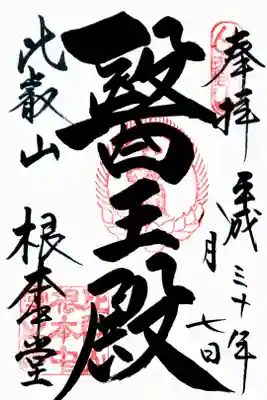 奉拝 平成三十年
八月七日
醫王殿
比叡山 根本堂